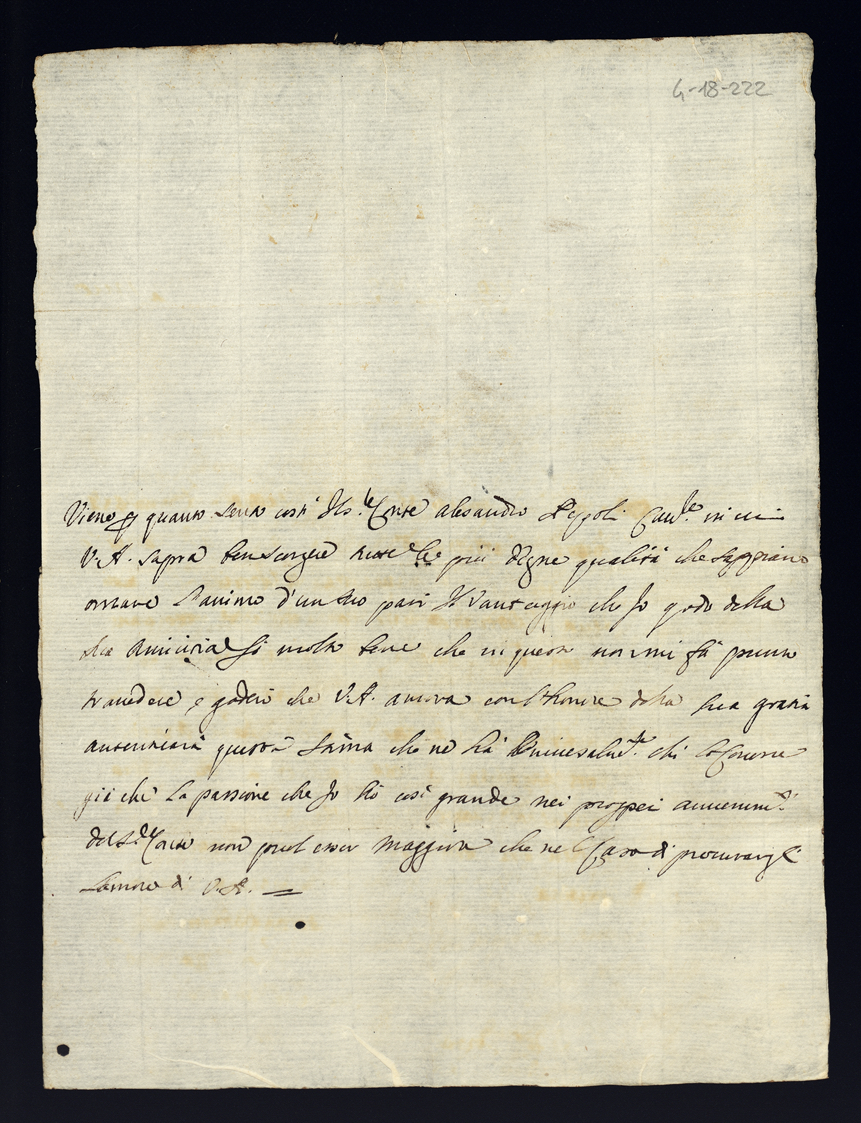 4-18-222
Viene p quanto sento costi Il s.r Conte alesandro Pepoli Cau.re in cui
V.A. sapra ben scorgere tutte le più degne qualità che sappiano
ornare l'animo d'un suo pari Il Vantaggio che Io godo della
sua amicizia fà molto bene che in questo non mi fà punto
trauedere, e goderò che V.A. ancora con l'honore della sua gratia
autentichi questa stima che ne hà chi lo Conosce
già che la passione che Io hò così grande nei prosperi auuenim.ti
del S.r Conte non puol esser maggiore che nel Caso di procurargli
l'amore di V.A.